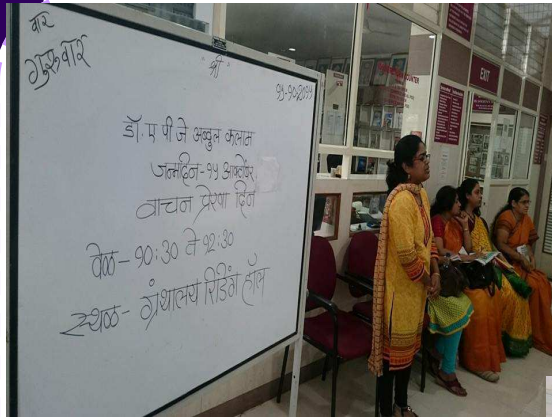 वार
गुरुवार
श्री
१५-१०-२०१५
डॉ. ए पी जे अब्दुल कलाम
जन्मदिन-१५ ऑक्टोंबर
वाचन प्रेरणा दिन
वेळ-१०:३० ते १२:३०
स्थळ- ग्रंथालय रिडिंग हॉल
EXIT